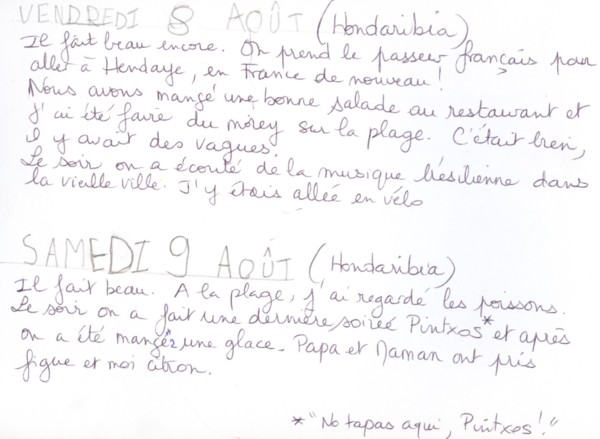 VENDREDI 8 AOÛT (Hondaribia)
Il fait beau encore. On prend le passeur français pour
aller à Hendaye, en France de nouveau !
Nous avons mangé une bonne salade au restaurant et
j'ai été faire du morey sur la plage. C'était bien,
il y avait des vagues.
Le soir on a écouté de la musique bésilienne dans
la vieille ville. J'y étais allée en vélo
SAMEDI 9 AOÛT (Hondaribia)
Il fait beau. A la plage, j'ai regardé les poissons.
Le soir on a fait une dernière soireé Pintxos* et après
on a été manger une glace. Papa et Maman ont pris
figue et moi citron.
*"No tapas aqui, Pintxos!"